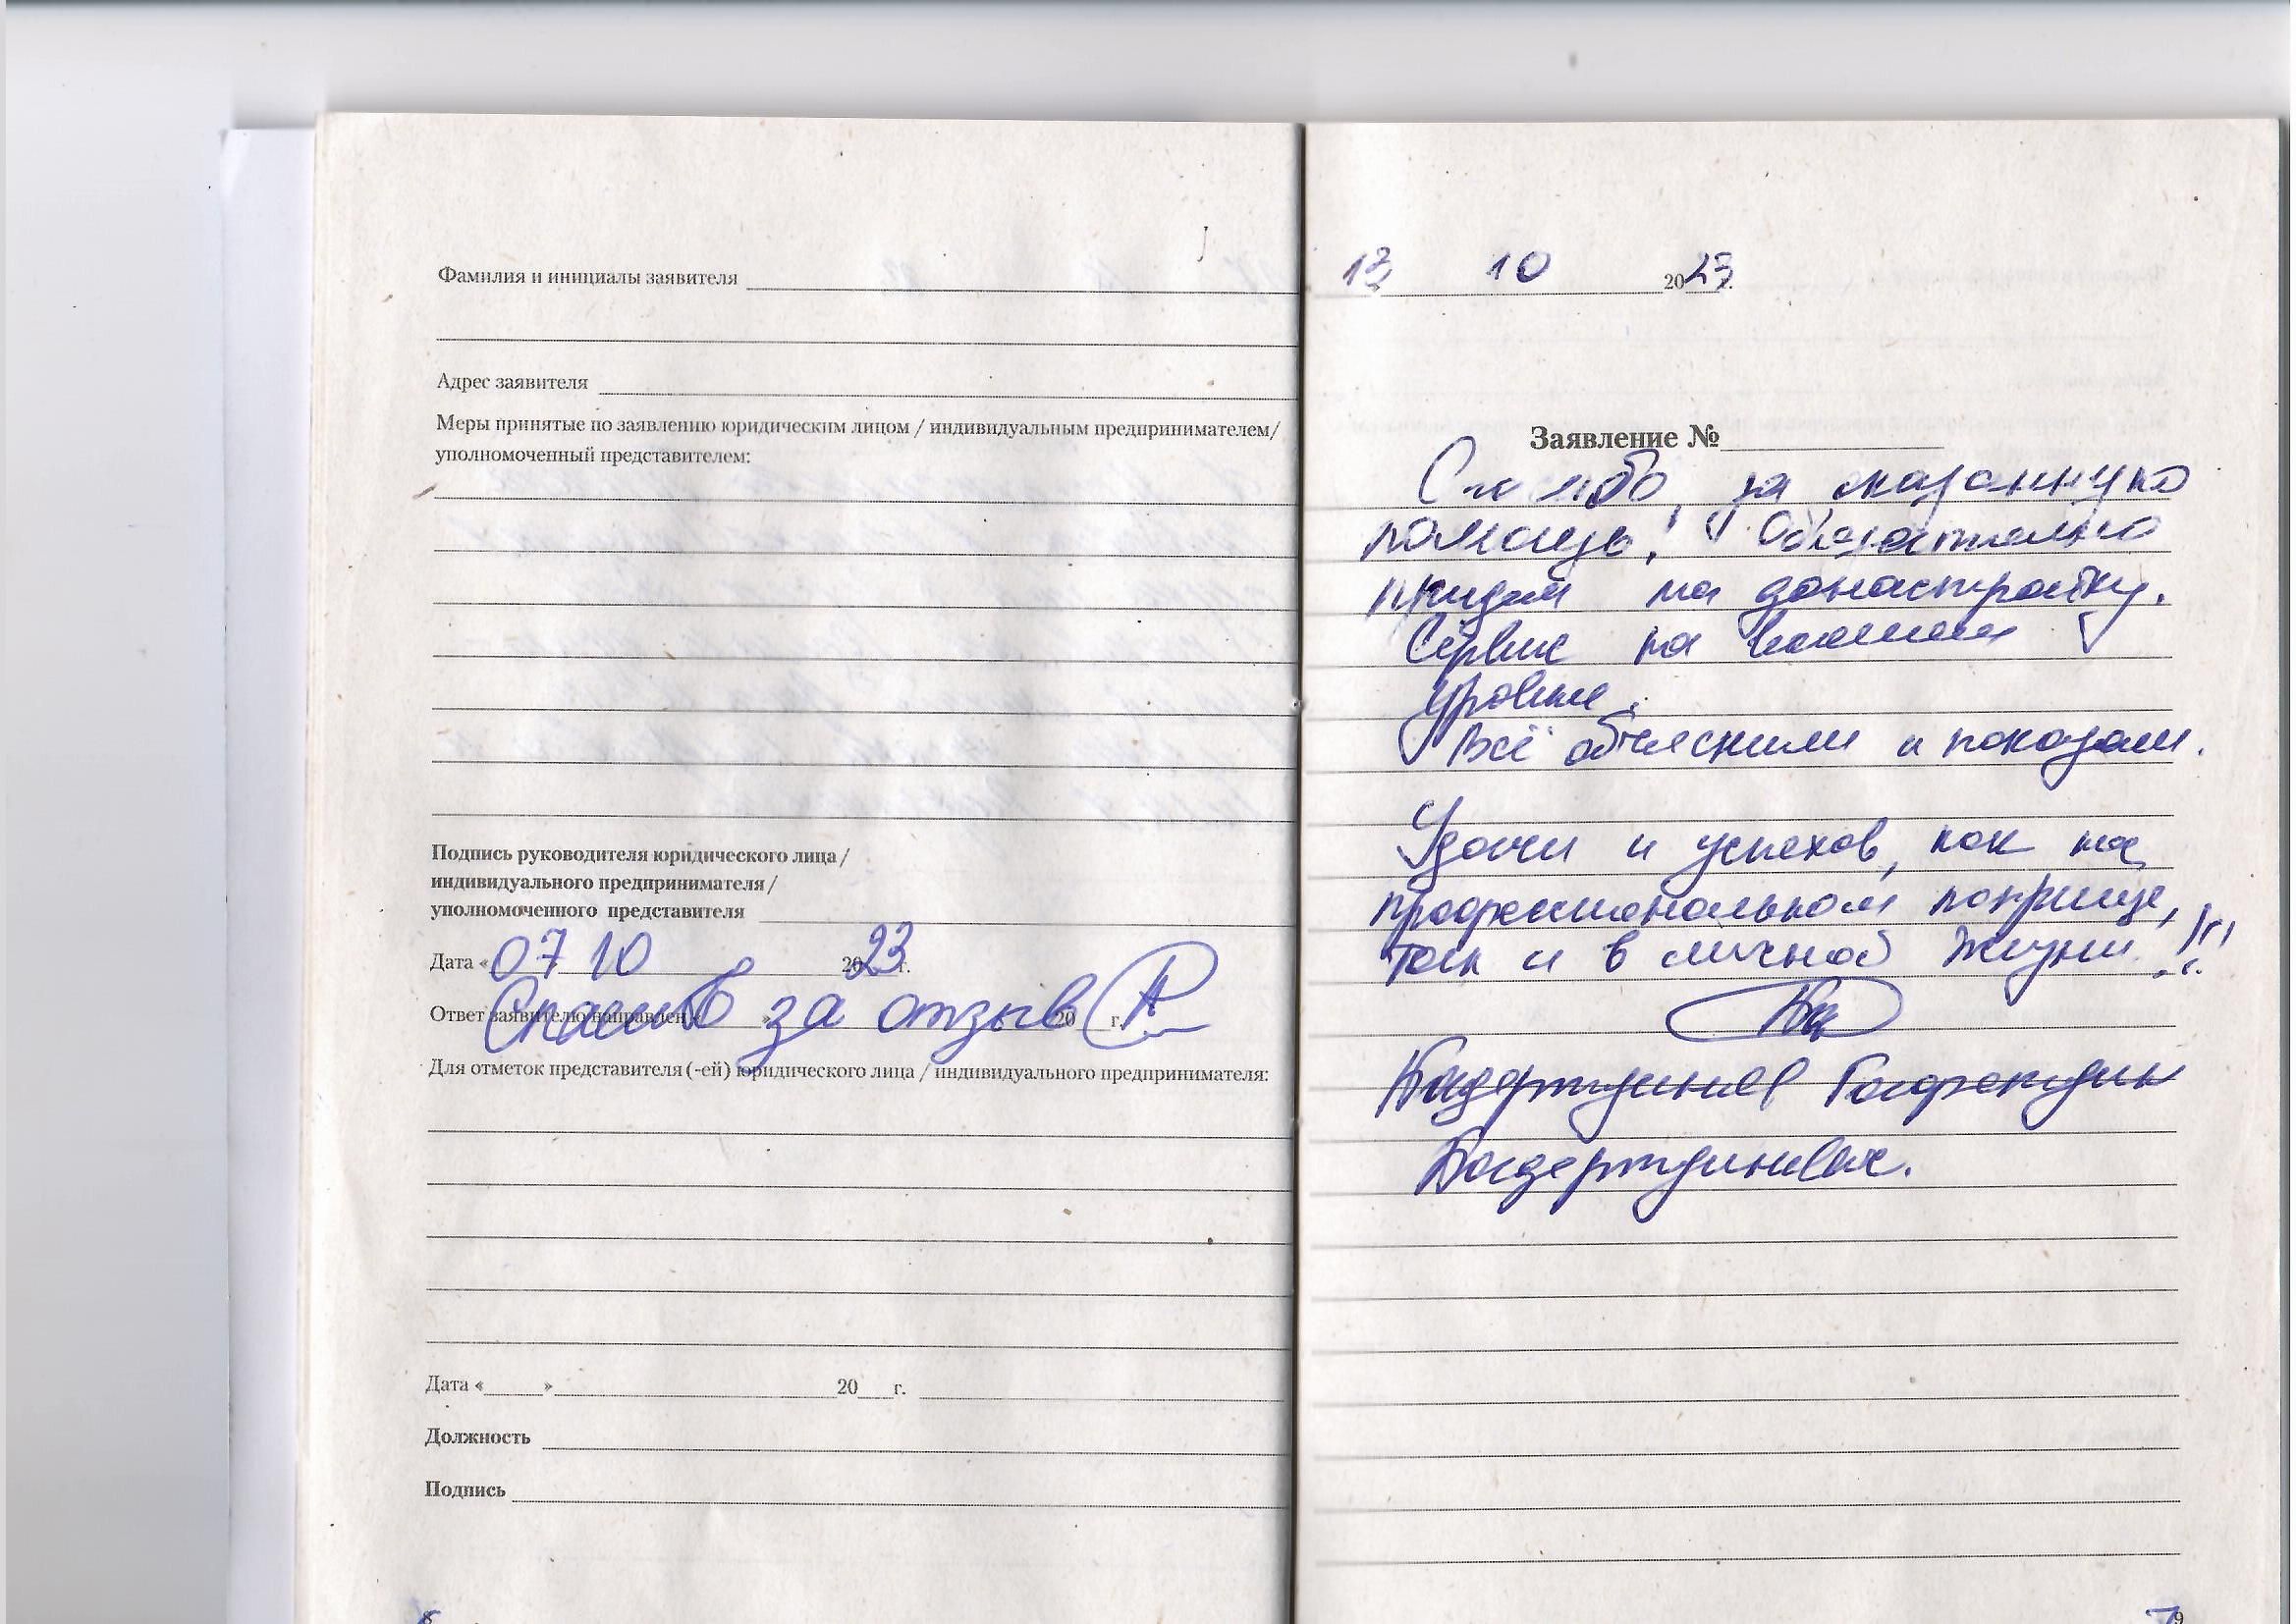 Фамилия и инициалы заявителя
Адрес заявителя
Меры принятые по заявлению юридическим лицом / индивидуальным предпринимателем/
уполномоченный представителем:
Подпись руководителя юридического лица /
индивидуального предпринимателя /
уполномоченного представителя
Дата « 07 10 2023 г.
Спасибо за отзыв
Ответ заявителю направлен « » 20 г.
Для отметок представителя (-ей) юридического лица / индивидуального предпринимателя:
Дата « » 20 г.
Должность
Подпись
13 10 2023 г.
Заявление №
Спасибо за оказанную
помощь! Обязательно
придем на донастройку.
Сервис на высшем
уровне.
Всё объяснили и показали.
Удачи и успехов, как на
профессиональном поприще,
так и в личной жизни!!!
9